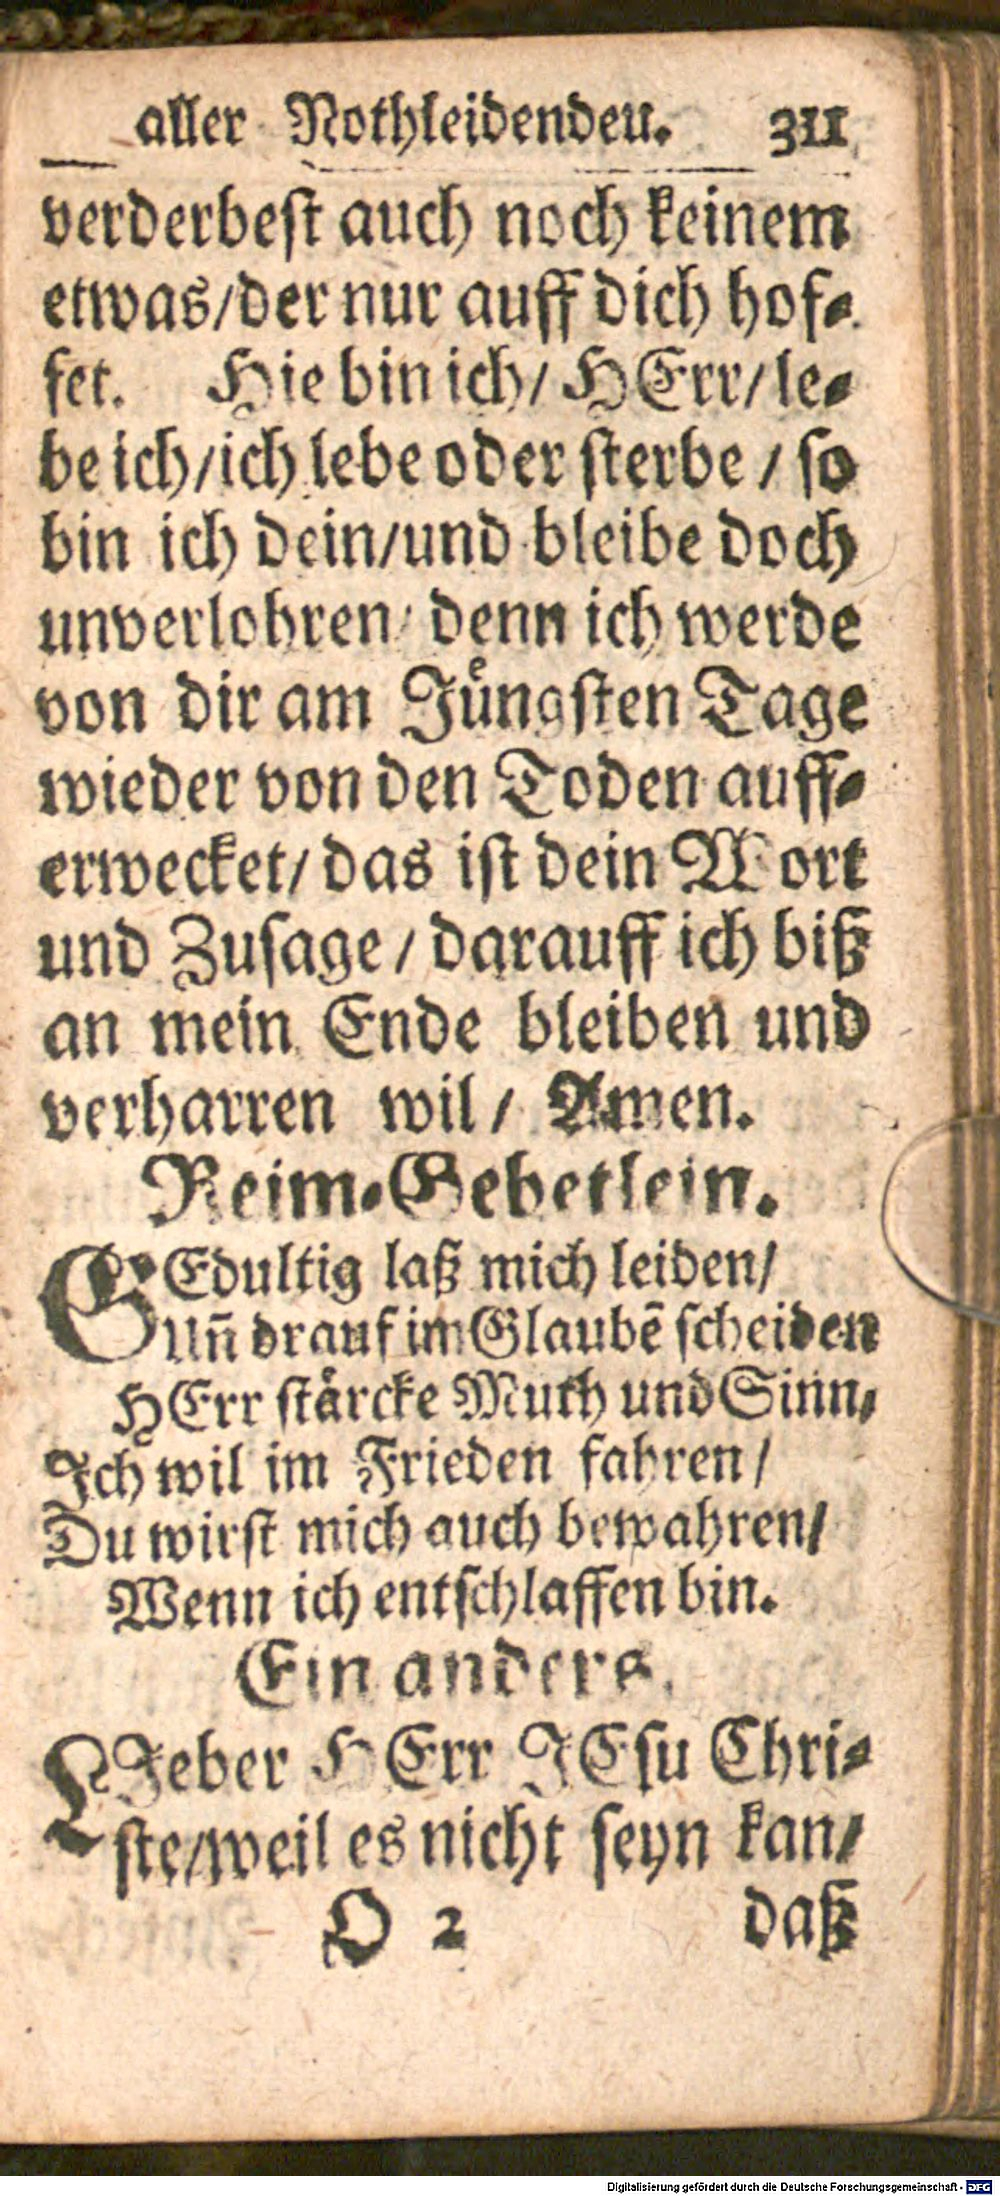 aller Nothleidenden. 311
verderbeſt auch noch keinem
etwas/der nur auff dich hof-
fet. Hie bin ich/ HErr/ le-
be ich/ich lebe oder ſterbe / ſo
bin ich dein/und bleibe doch
unverlohren/ denn ich werde
von dir am Juͤngſten Tage
wieder von den Toden auff-
erwecket/ das iſt dein Wort
und Zuſage / darauff ich biß
an mein Ende bleiben und
verharren wil / Amen.
Reim-Gebetlein.
GEdultig laß mich leiden/
Uñ drauf im Glaubē ſcheiden
HErr ſtaͤrcke Muth und Sinn,
Ich wil im Frieden fahren /
Du wirſt mich auch bewahren/
Wenn ich entſchlaffen bin.
Ein anders.
LIeber HErr JEſu Chri-
ſte/weil es nicht ſeyn kan/
O 2 daß
Digitalisierung gefördert durch die Deutsche Forschungsgemeinschaft - DFG